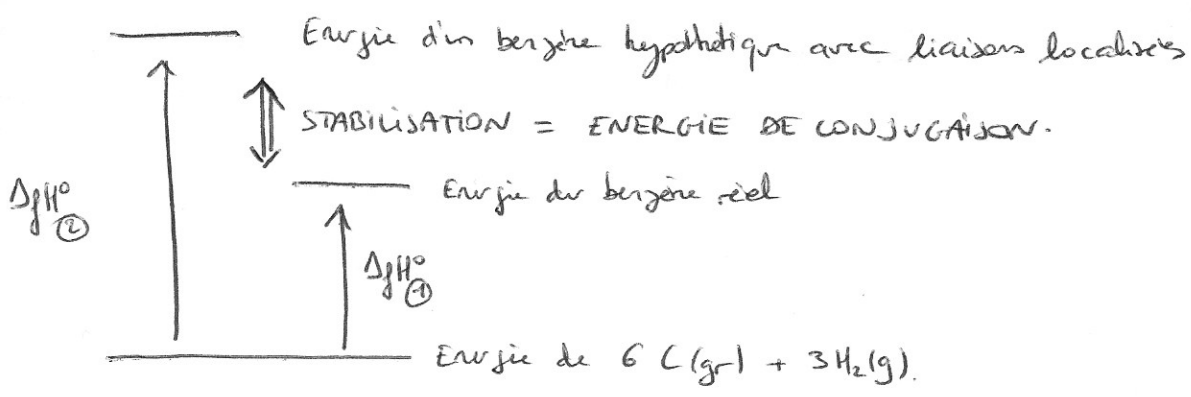 Energie d'un benzène hypothétique avec liaisons localisées
STABILISATION = ENERGIE DE CONJUGAISON.
Energie du benzène réel
ΔfH° ②
ΔfH° ①
Energie de 6 C(gr) + 3H₂(g).